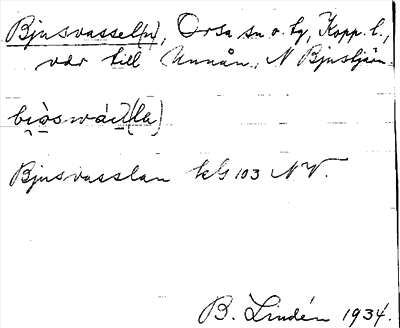 Bjusvassel(n), Orsa sn o. tg, Kopp. l.,
vdr till Unnån, N Bjustjärn.
Bjusvasslan kG 103 NV.
B. Lindén 1934.